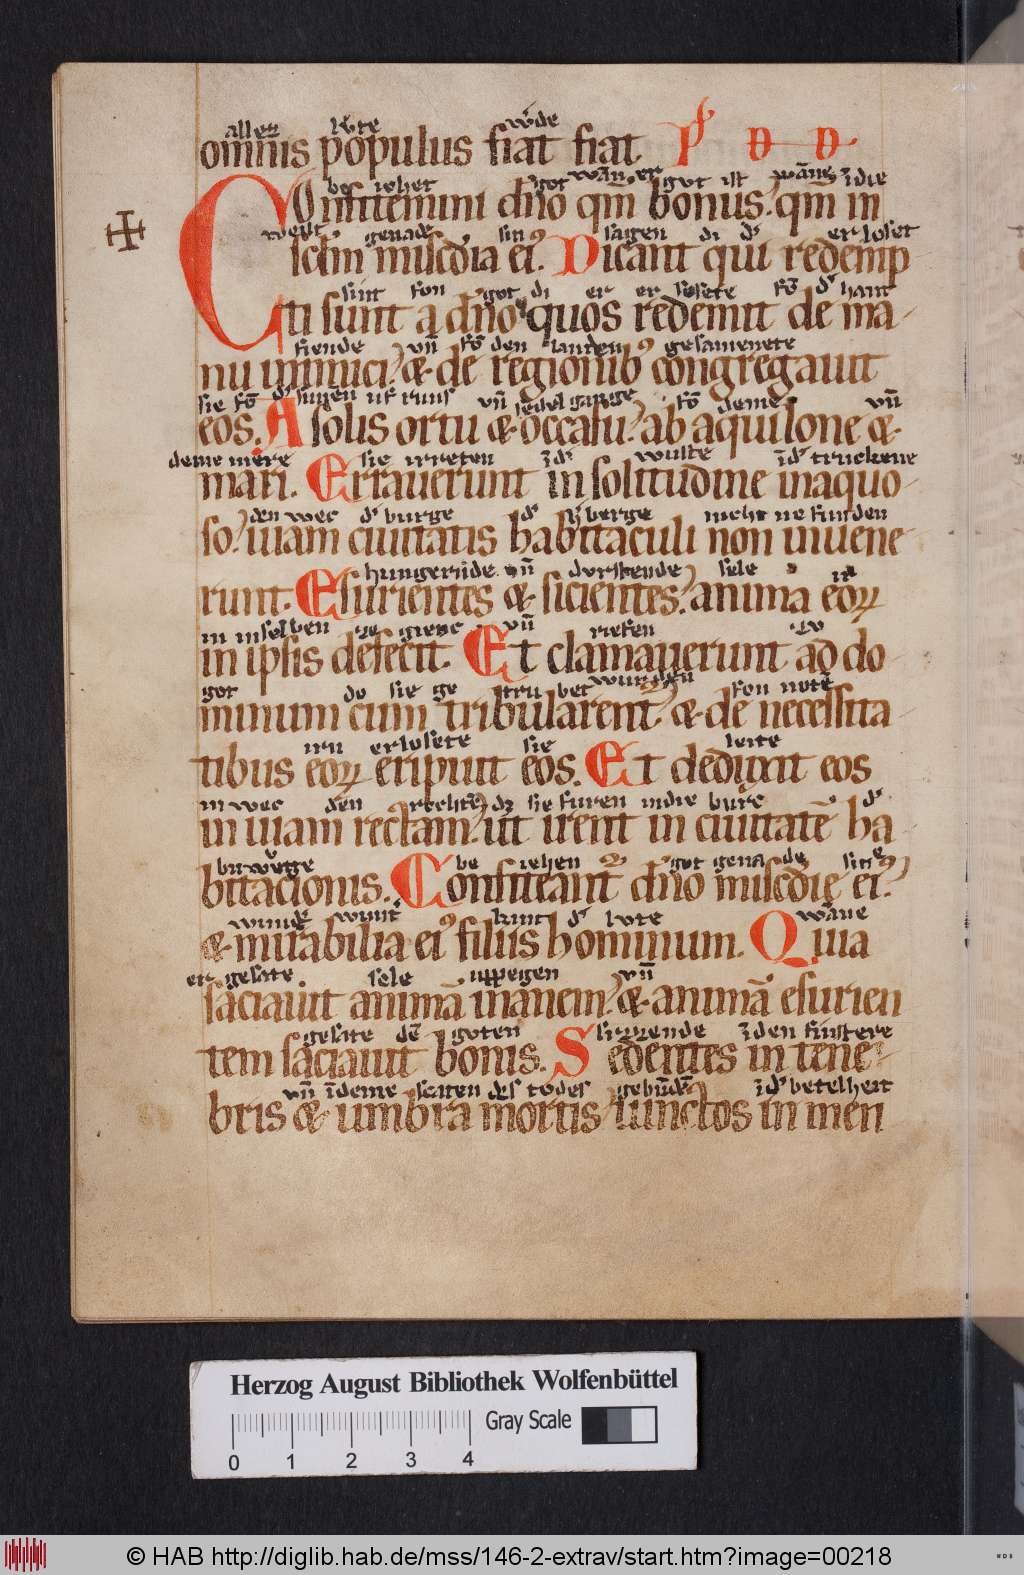 allez lv̊te w̾de
omnis populus fiat fiat. P̾s D D
be iehet got wan er gvt ist wane in die
Confitemini dn̄o qm̄ bonus: qm̄ in
welt genade sin sagen di d̾ er loset
sclm̄ misc̄dia ei⁹. Dicant qui redemp
sint fon got di er er losete fō d̾ hant
ti sunt a dn̄o: quos redemit de ma-
fiende vn̄ fō den landen gesamenete
nu inimici: & de regionib⁹ congregauit
sie fō d̾ sunnen uf runs vn̄ sedel gange fō deme vn̄
eos. A solis ortu & occasu: ab aquilone &
deme mere sie irreten in d̾ wuste in d̾ truckene
mari. Errauerunt in solitudine inaquo-
den wec d̾ burge d̾ h̾berge nicht ne funden
so: uiam ciuitatis habitaculi non inuene-
hungerunde vn̄ durstende sele ir
runt. Esurientes & sicientes: anima eoꝝ
in in selben ge gienc vn̄ riefen zv
in ipsis defecit. Et clamauerunt ad do-
got do sie ge tru bet wurden fon note
minum cum tribularent᷑: & de necessita
irn erlosete sie leite
tibus eoꝝ eripuit eos. Et deduxit eos
in wec den rechtē dz sie furen in die burc d̾
in uiam rectam: ut irent in ciuitatē ha
buwunge be iehen got genade sine
bitacionis. Confiteant᷑ dn̄o misc̄die ei⁹:
wunder kint d̾ lvte wane
& mirabilia ei⁹ filiis hominum. Quia
er gesate sele uppegen vn̄
saciauit animā inanem: & animā esurien
gesate dē goten sizzende in den finstere
tem saciauit bonis. Sedentes in tene-
vn̄ in deme scaten des todes gebūdē in d̾ betelheit
bris & umbra mortis: iunctos in men
Herzog August Bibliothek Wolfenbüttel
Gray Scale
0 1 2 3 4
© HAB http://diglib.hab.de/mss/146-2-extrav/start.htm?image=00218